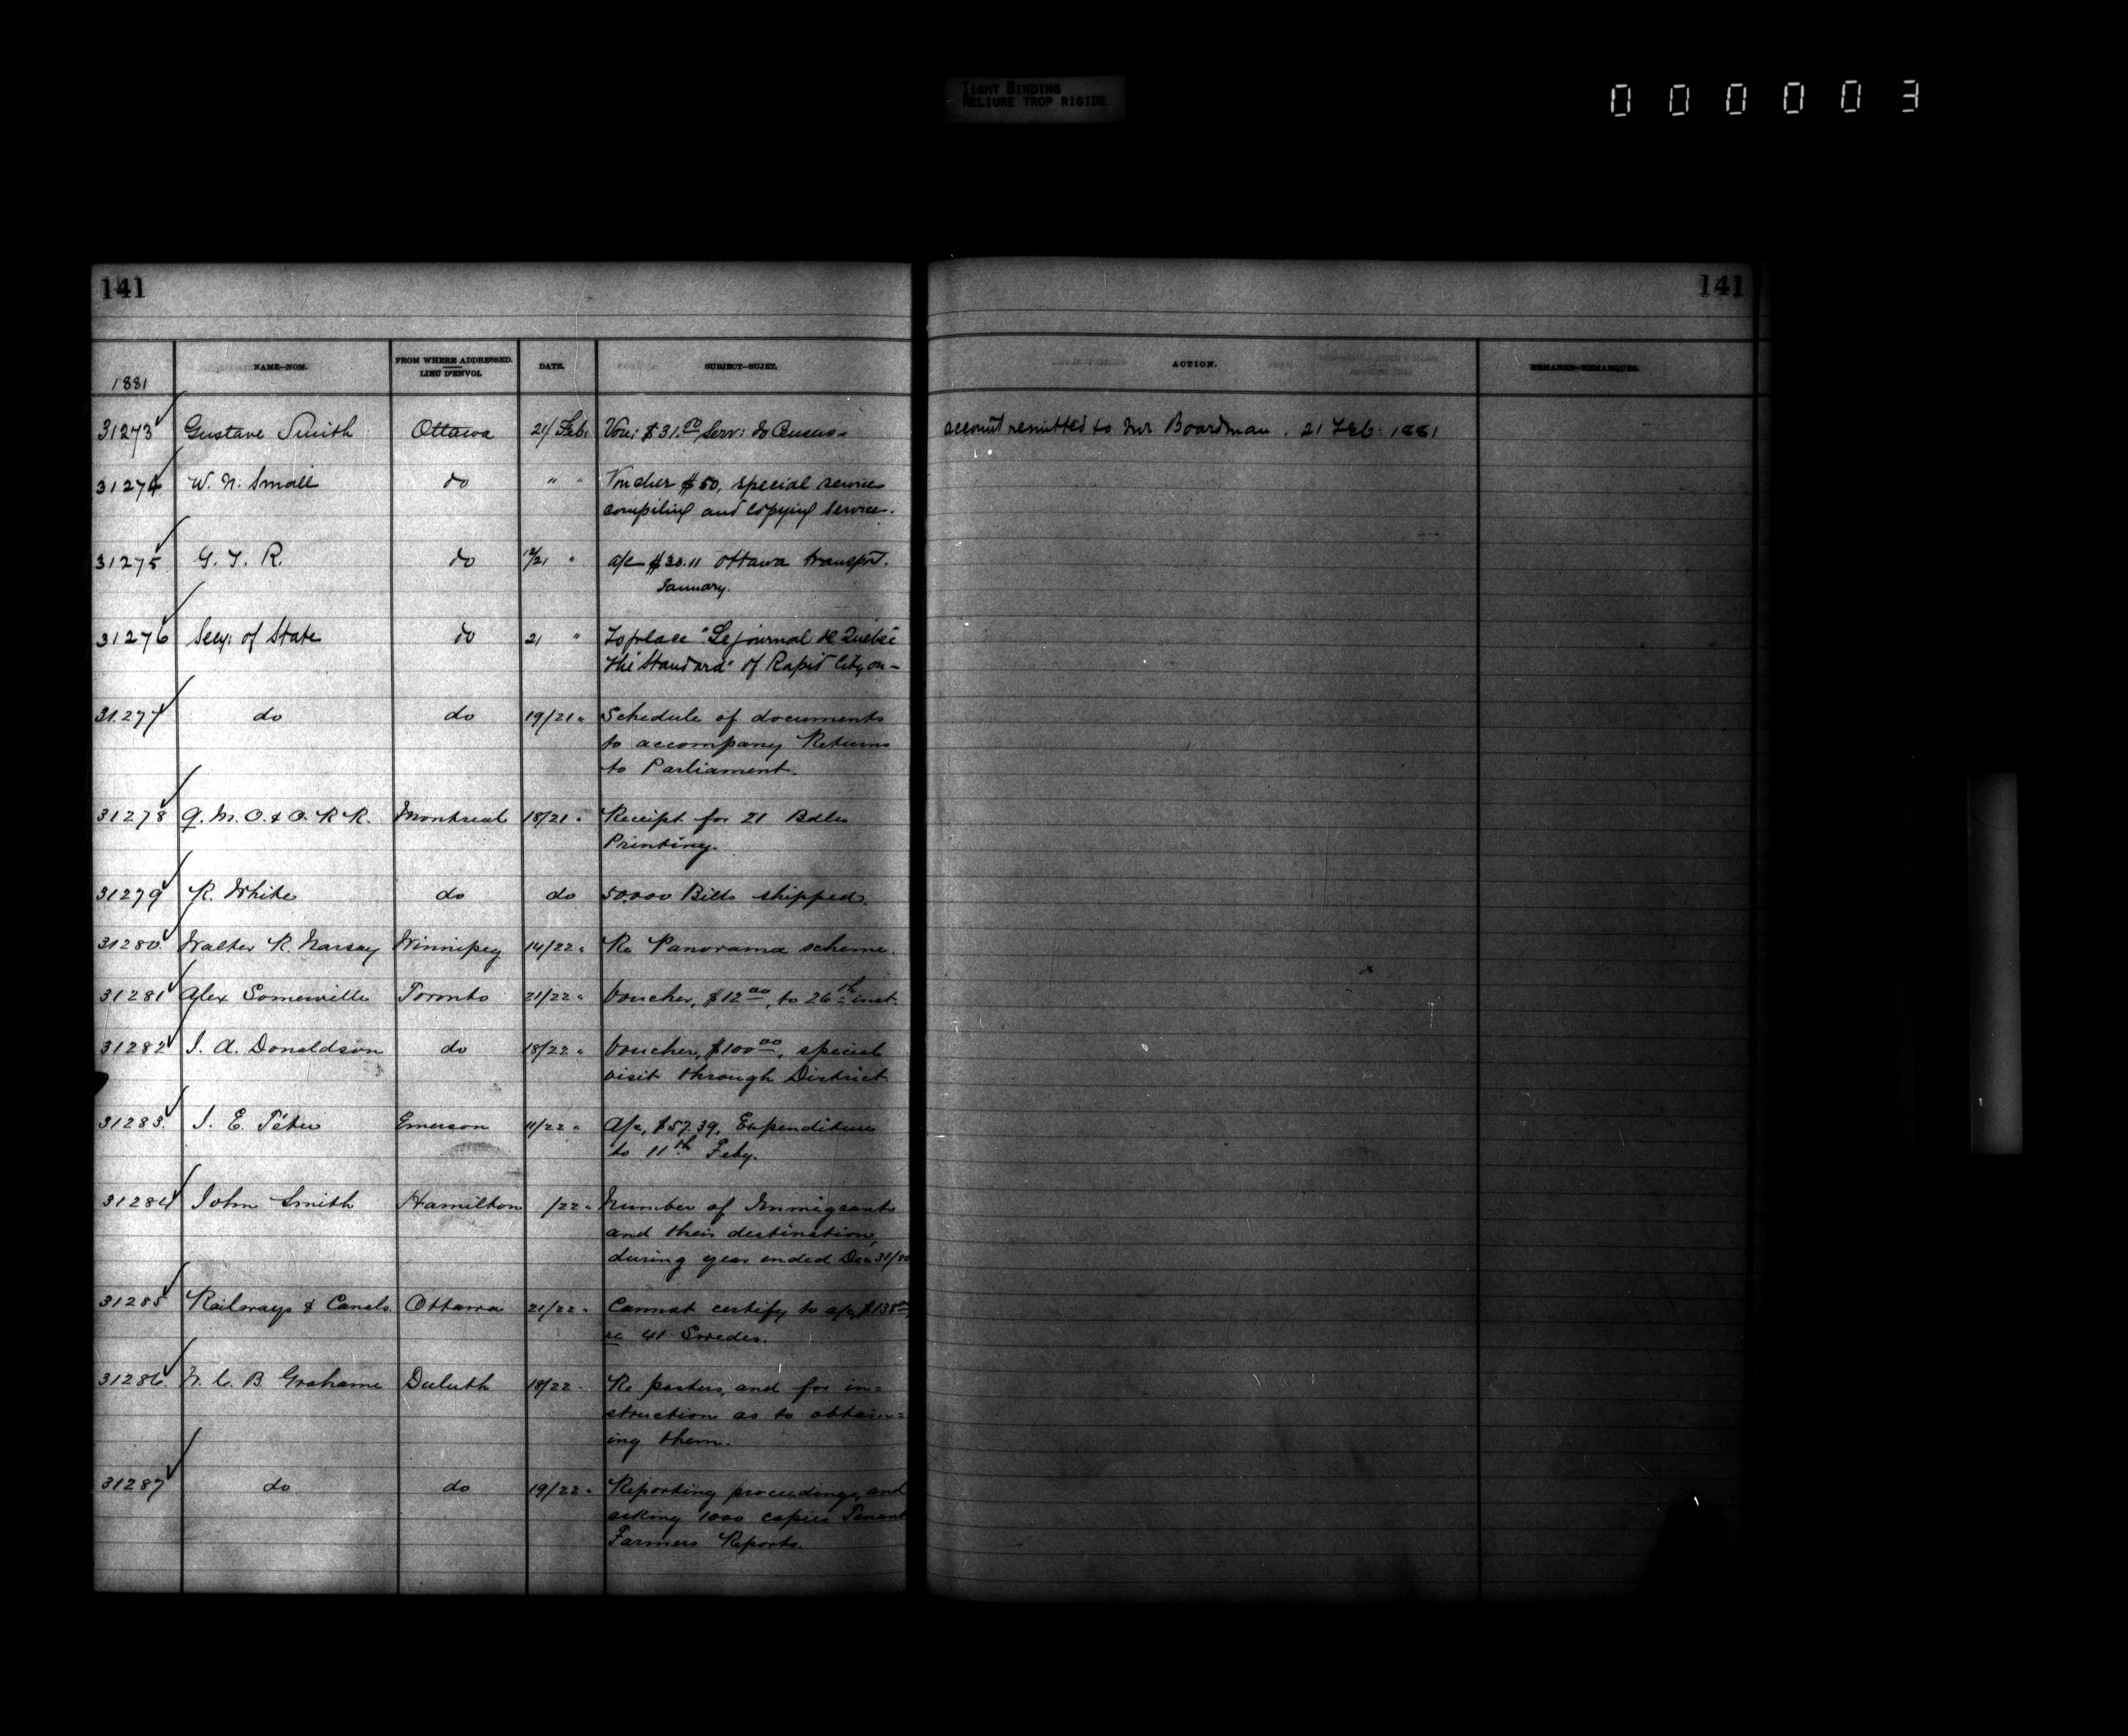 TIGHT BINDING
RELIURE TROP RIGIDE
000003
141
141
1881
NAME—NOM.
FROM WHERE ADDRESSED.
LIEU D'ENVOI.
DATE.
SUBJECT—SUJET.
ACTION.
REMARKS—REMARQUES.
31273 Gustave Smith Ottawa 21/ Feb: Vou: $31.00 Serv: do Census - account remitted to Mr Boardman. 21 Feb. 1881
31274 W. N. Small do " " Voucher $50, special service
compiling and copying service.
31275 G. T. R. do 19/21 " a/c $20.11 Ottawa transpt.
January.
31276 Secy: of State do 21 " To place "Le journal de Québec
The Standard" of Rapid City on -
31277 do do 19/21 " Schedule of documents
to accompany Returns
to Parliament.
31278 Q. M. O. & O. R R. Montreal 18/21 " Receipt for 21 Bdls
Printing.
31279 R. White do do 50,000 Bills shipped.
31280 Walter R. Nursey Winnipeg 14/22 " Re Panorama scheme.
31281 Alex Somerville Toronto 21/22 " Voucher, $12 00, to 26th inst.
31282 J. A. Donaldson do 18/22 " Voucher, $100 00, special
visit through District
31283 J. E. Têtu Emerson 11/22 " a/c, $57.39, Expenditure
to 11th Feby.
31284 John Smith Hamilton /22 " Number of Immigrants
and their destination,
during year ended Dec 31/80
31285 Railways & Canals Ottawa 21/22 " Cannot certify to a/c, $138
re 41 Swedes.
31286 W. C. B. Grahame Duluth 18/22 " Re posters, and for in=
struction as to obtain=
ing them.
31287 do do 19/22 " Reporting proceedings, and
asking 1000 copies Tenant
Farmers Reports.